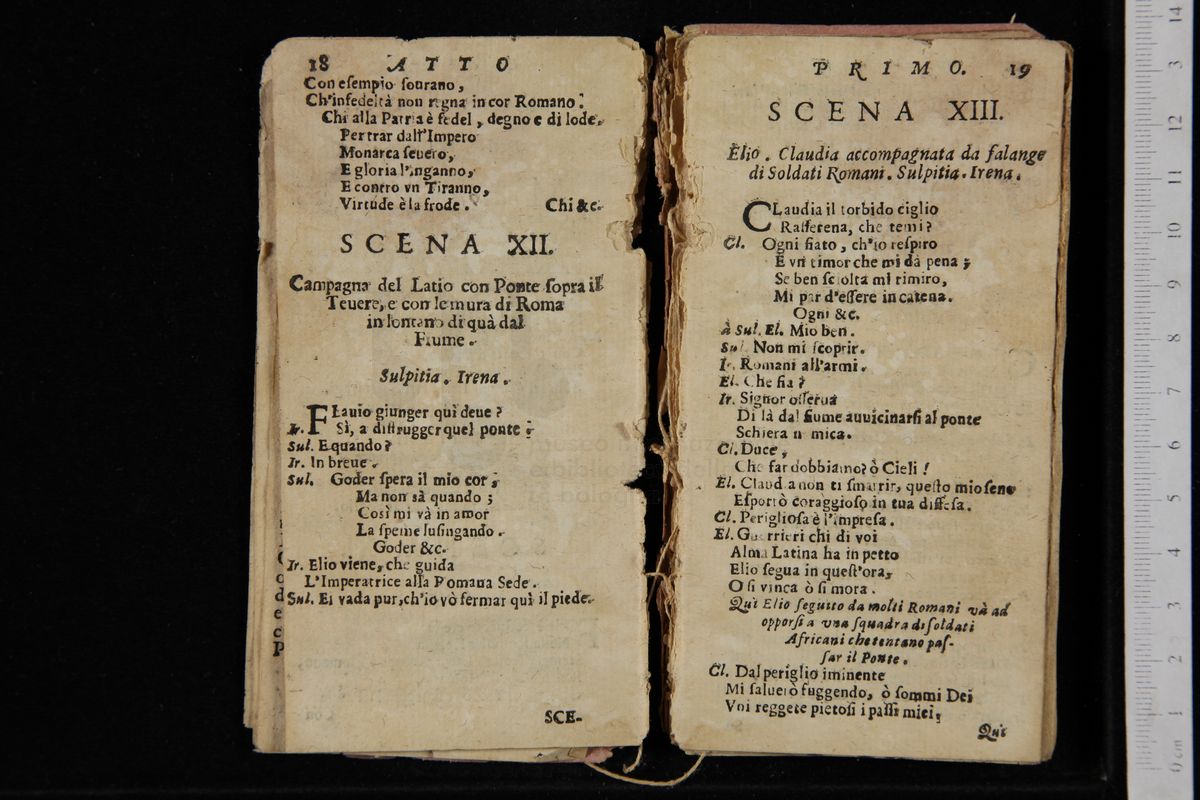 18 ATTO
Con esempio sourano,
Ch'infedeltà non regna in cor Romano.
Chi alla Patria è fedel, degno e di lode.
Per trar dall'Impero
Monarca seuero,
E gloria l'inganno,
E contro vn Tiranno,
Virtude è la frode. Chi &c.
SCENA XII.
Campagna del Latio con Ponte sopra il
Teuere, e con le mura di Roma
in lontano di quà dal
Fiume.
Sulpitia. Irena.
FLauio giunger quì deue?
Ir. Sì, a distrugger quel ponte.
Sul. E quando?
Ir. In breue.
Sul. Goder spera il mio cor;
Ma non sà quando;
Così mi và in amor
La speme lusingando.
Goder &c.
Ir. Elio viene, che guida
L'Imperatrice alla Romana Sede.
Sul. Ei vada pur, ch'io vò fermar quì il piede.
SCE-
PRIMO. 19
SCENA XIII.
Elio. Claudia accompagnata da falange
di Soldati Romani. Sulpitia. Irena.
CLaudia il torbido ciglio
Rasserena, che temi?
Cl. Ogni fiato, ch'io respiro
E vn timor che mi dà pena;
Se ben sciolta mi rimiro,
Mi par d'essere in catena.
Ogni &c.
À Sul. El. Mio ben.
Sul. Non mi scoprir.
Ir. Romani all'armi.
El. Che fia?
Ir. Signor osserua
Di là dal fiume auuicinarsi al ponte
Schiera nimica.
Cl. Duce,
Che far dobbiamo? ò Cieli!
El. Claudia non ti smarrir, questo mio seno
Esportò coraggioso in tua difesa.
Cl. Perigliosa è l'impresa.
El. Guerrieri chi di voi
Alma Latina ha in petto
Elio segua in quest'ora,
O si vinca ò si mora.
Quì Elio seguito da molti Romani và ad
opporsi a vna squadra di soldati
Africani che tentano pas-
sar il Ponte.
Cl. Dal periglio iminente
Mi saluerò fuggendo, ò sommi Dei
Voi reggete pietosi i passi miei,
Quì